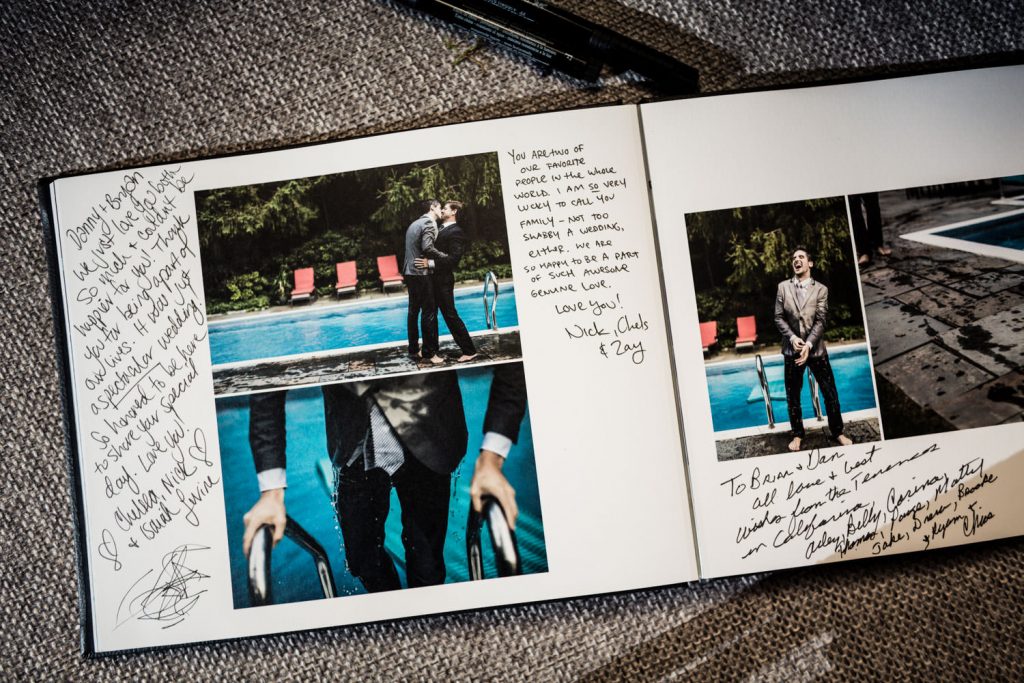 Danny + Bryan
We just love you both
so much + couldn't be
happier for you! Thank
you for being apart of
our lives. It was just
a spectacular wedding!
So honored to be here
to share your special
day. Love you!
Chelsea, Nick
& Isaiah
YOU ARE TWO OF
OUR FAVORITE
PEOPLE IN THE WHOLE
WORLD. I AM SO VERY
LUCKY TO CALL YOU
FAMILY - NOT TOO
SHABBY A WEDDING,
EITHER. WE ARE
SO HAPPY TO BE A PART
OF SUCH AWESOME
GENUINE LOVE.
LOVE YOU!
Nick, Chels
& Zay
To Brian & Dan
all love & best
wishes from the
in California
Billy, Carina, Matty
Thomas, Paige, Brooke
Jake, Drew,
&